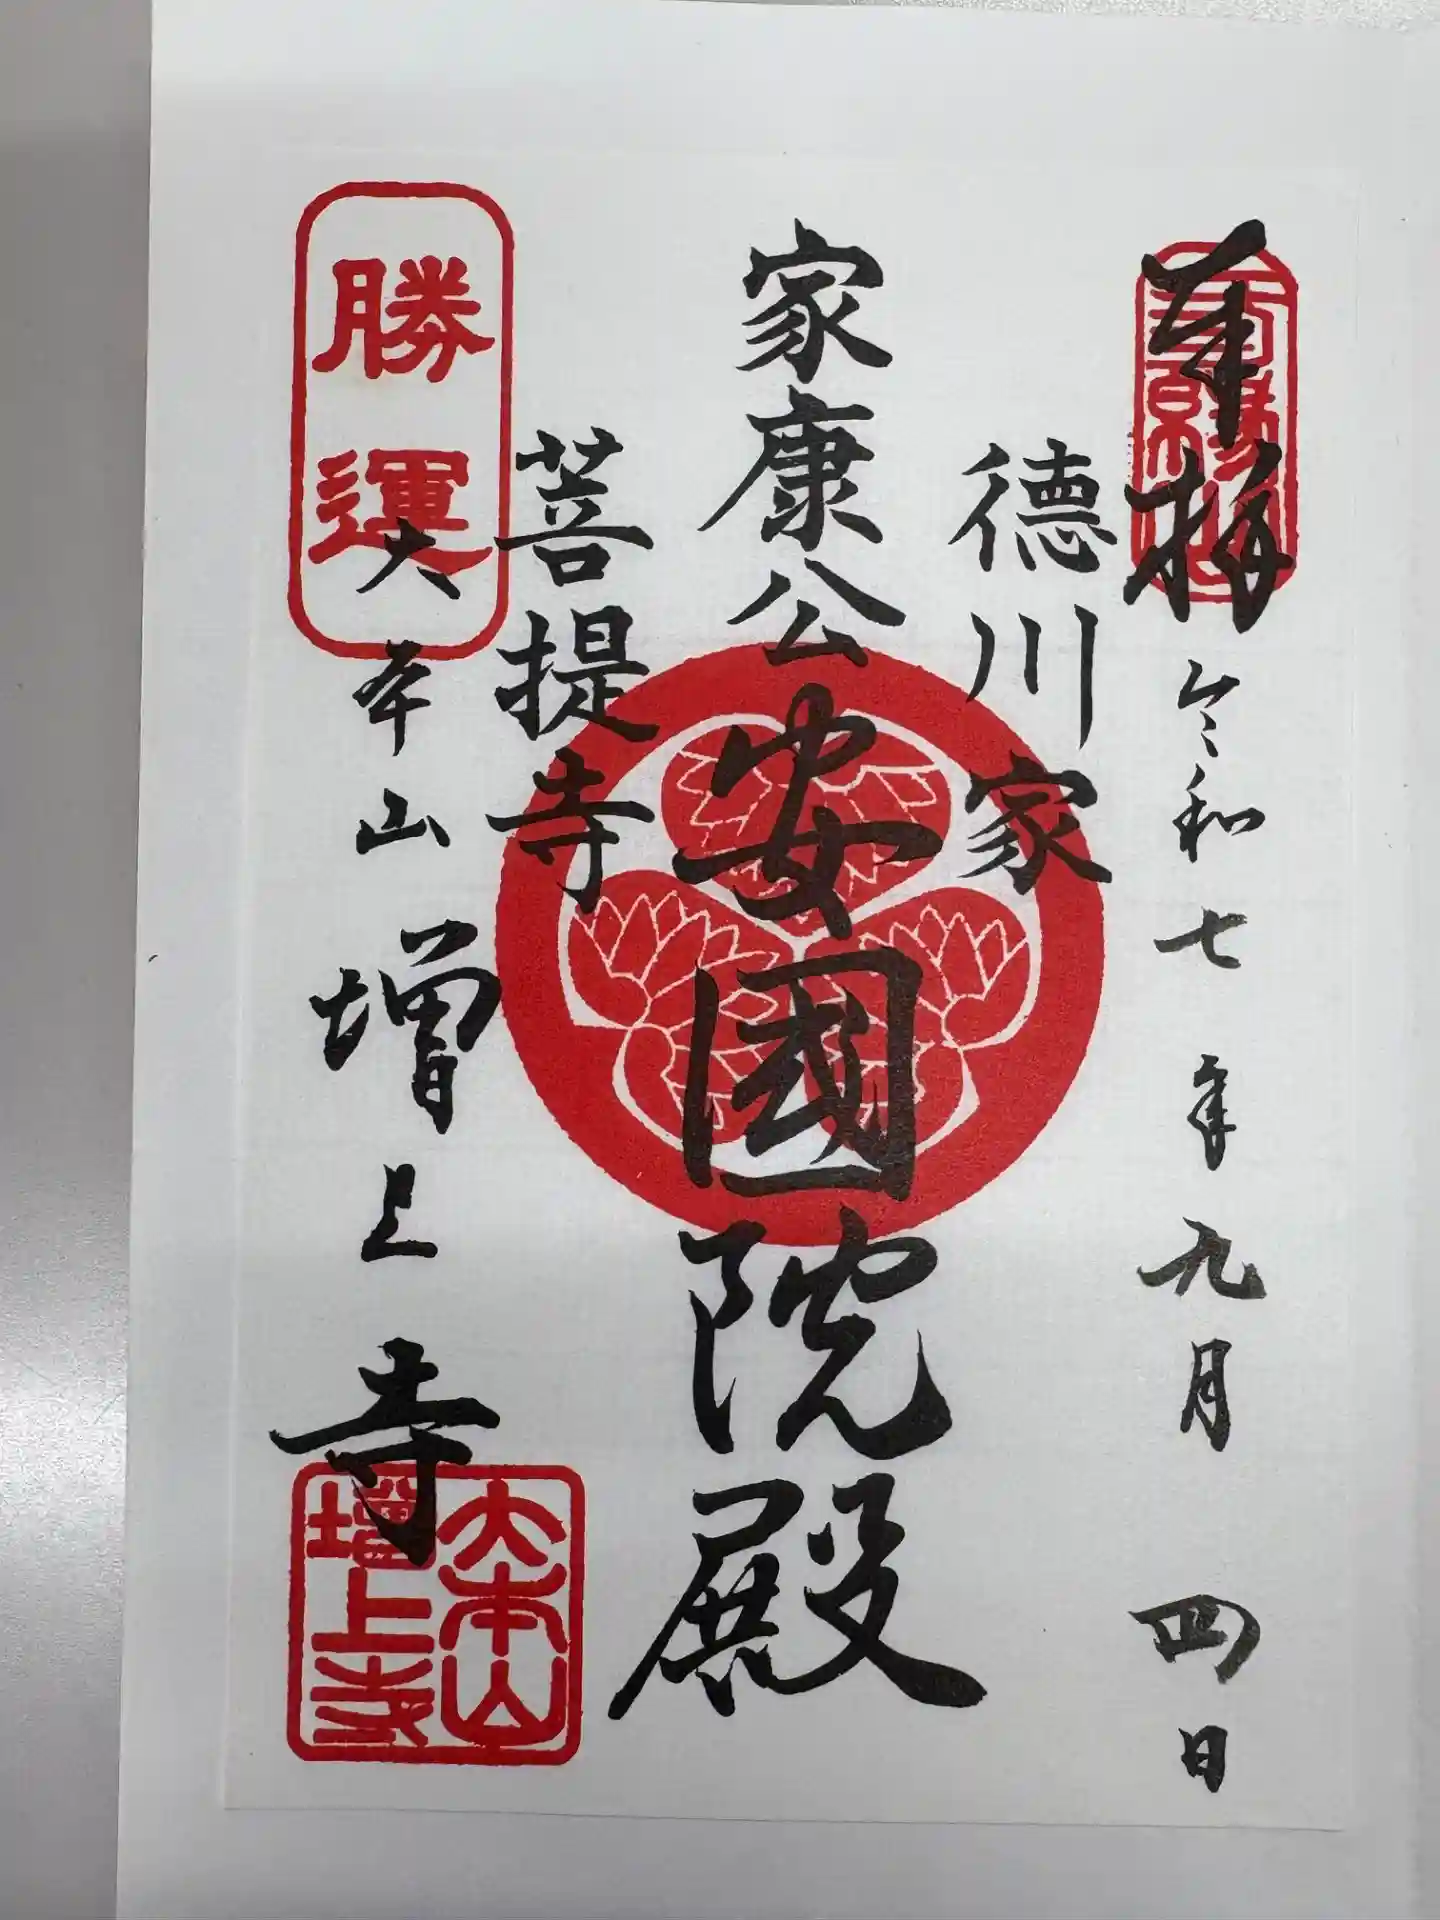 奉拝
令和七年九月四日
徳川家
家康公安國院殿
菩提寺
勝運
大本山増上寺
大本山
増上寺